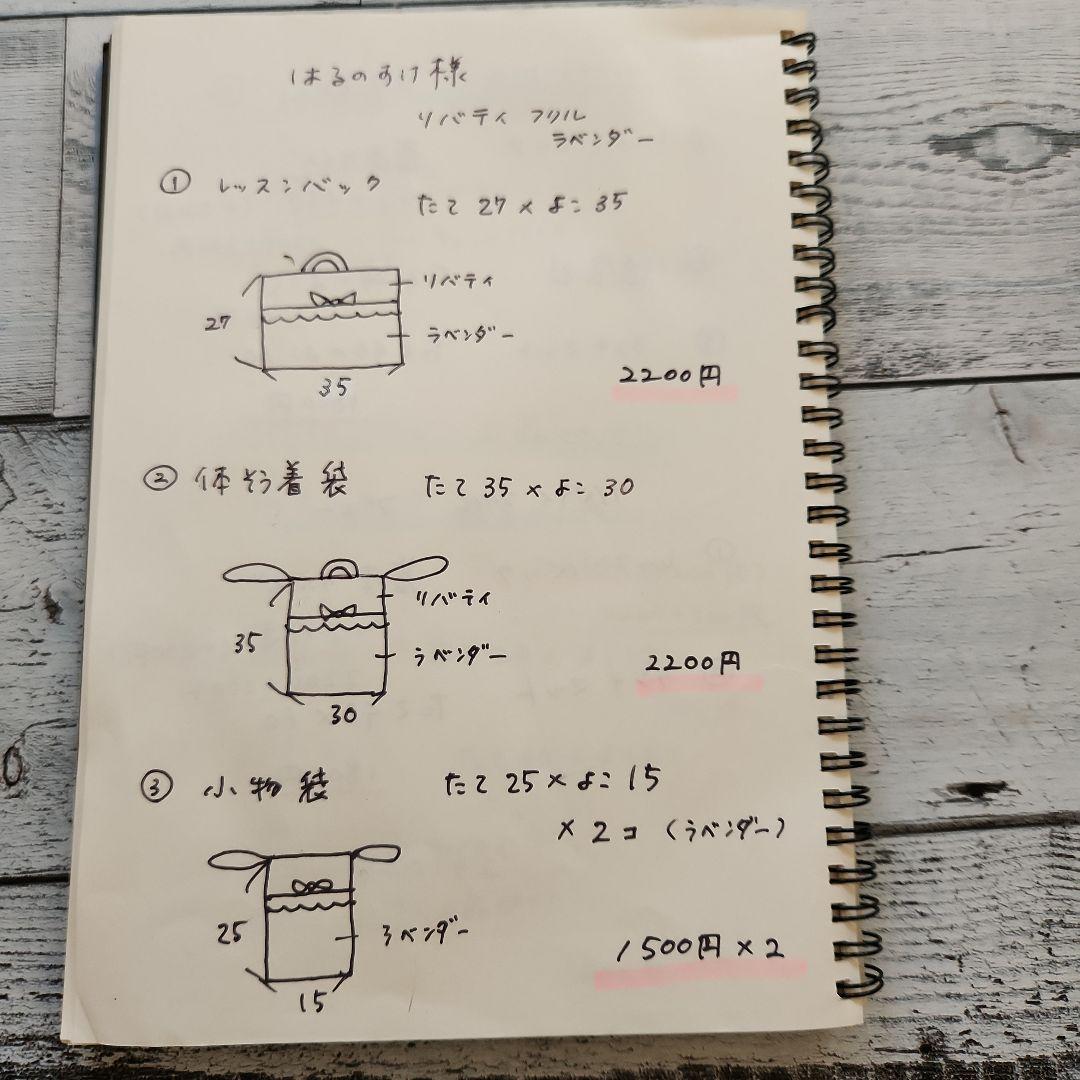 はるのすけ様
リバティ フリル
ラベンダー
① レッスンバック
たて 27 × よこ 35
リバティ
27
ラベンダー
35
2200円
② 体そう着袋 たて 35 × よこ 30
リバティ
35
ラベンダー
30
2200円
③ 小物袋 たて 25 × よこ 15
× 2コ (ラベンダー)
25
ラベンダー
15
1500円 × 2